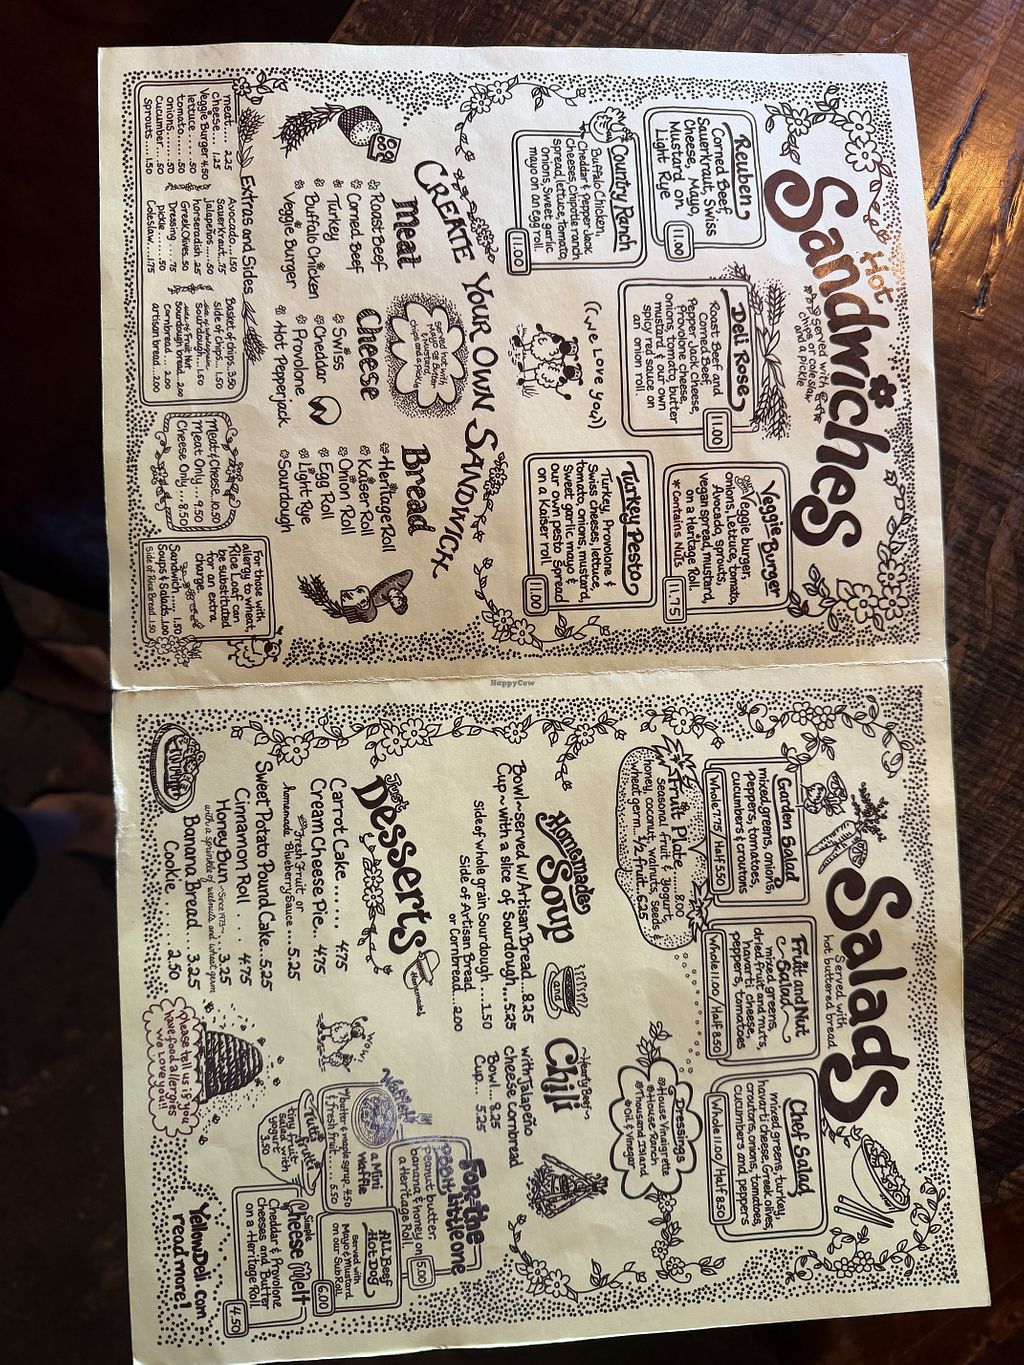 Hot
Sandwiches
served with
chips or cole slaw
and a pickle
Reuben
Corned Beef,
Sauerkraut, Swiss
Cheese, Mayo,
Mustard on
Light Rye
11.00
Deli Rose
Roast Beef and
Corned Beef,
Pepper Jack cheese,
Provolone cheese,
onions, tomato, butter
mustard & our own
spicy red sauce on
an onion roll.
11.00
Veggie Burger
Veggie burger,
onions, Lettuce, tomato,
Avocado, sprouts,
vegan spread, mustard,
on a Heritage Roll.
*Contains Nuts
11.75
Country Ranch
Buffalo Chicken,
Cheddar & Pepper Jack
cheeses, chipotle ranch
spread, lettuce, tomato,
onions, Sweet garlic
mayo on an egg roll.
11.00
((we love you))
Turkey Pesto
Turkey, Provolone &
Swiss cheeses, lettuce,
tomato, onions, mustard,
sweet garlic mayo &
our own pesto spread
on a Kaiser roll.
11.00
CREATE YOUR OWN SANDWICH
served hot with
Mayo or Butter
& Mustard,
chips and pickle
Meat
Roast Beef
Corned Beef
Turkey
Buffalo Chicken
Veggie Burger
Cheese
Swiss
Cheddar
Provolone
Hot Pepperjack
Bread
Heritage Roll
Kaiser Roll
Onion Roll
Egg Roll
Light Rye
Sourdough
Meat & Cheese..10.50
Meat Only.... 9.50
Cheese Only... 8.50
Extras and Sides
meat.... 2.25
cheese.... 1.25
Veggie Burger 4.50
lettuce..... .50
tomato..... .50
onions..... .50
cucumber... .50
Sprouts.... 1.50
Avocado...1.50
Sauerkraut...75
Jalapeños....50
horseradish .25
Greek Olives .50
Dressing ... .75
pickle..... .50
Coleslaw...1.75
Basket of chips.. 3.50
side of chips... 1.50
sourdough...1.50
Sourdough bread..2.00
cornbread... 2.00
artisan bread...2.00
For those with
allergy to wheat,
Rice Loaf can
be substituted
for an extra
charge.
Sandwich..... 1.50
Soups & Salads..1.00
Side of Rice Bread..1.50
HappyCow
Salads
Served with
hot buttered bread
Garden Salad
mixed greens, onions,
peppers, tomatoes,
cucumbers & croutons
Whole 7.75/Half 5.50
Fruit and Nut
Salad
mixed greens,
dried fruit and nuts,
havarti cheese,
peppers, tomatoes
Whole 11.00/Half 8.50
Chef Salad
mixed greens, turkey,
havarti cheese, Greek olives,
croutons, onions, tomatoes,
cucumbers and peppers
Whole 11.00/Half 8.50
Fruit Plate..... 8.00
seasonal fruit & yogurt,
honey, coconut, walnuts, seeds
wheat germ... 1/2 fruit..6.25
Dressings
House Vinaigrette
House Ranch
Thousand Island
oil & vinegar
Homemade
Soup
Bowl~served w/Artisan Bread... 8.25
Cup~with a slice of Sourdough...5.25
Side of whole grain Sourdough ...1.50
Side of Artisan Bread
or Cornbread... 2.00
and
~Hearty Beef~
Chili
with Jalapeño
Cheese cornbread
Bowl... 8.25
Cup... 5.25
Just
Desserts
Homemade!
Carrot Cake...... 4.75
Cream Cheese Pie... 4.75
with Fresh Fruit or
homemade Blueberry Sauce ...5.25
Sweet Potato Pound Cake.. 5.25
Cinnamon Roll . . . 4.75
Honey Bun ~Since 1973~ . . 3.25
with a sprinkle of walnuts and wheat germ
Banana Bread... 3.25
Cookie. . . . 2.50
WOW.
please tell us if you
have food allergies
We love you!!
For the
Little one
Peanut butter,
banana & honey on
a Heritage Roll.
5.00
a Mini
Waffle
w/butter & maple syrup. 4.50
& fresh fruit.... 5.50
ALL Beef
HOT DOG
Served with
Mayo & Mustard
on our Sub Roll
6.00
Tutti
Frutti
tiny fruit
salad with
yogurt
3.50
Simple
Cheese Melt
Cheddar & Provolone
cheeses and Butter
on a Heritage Roll.
4.50
YellowDeli.com
read more!